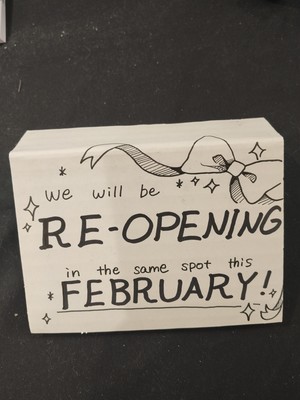 We will be
RE-OPENING
in the same spot this
FEBRUARY!